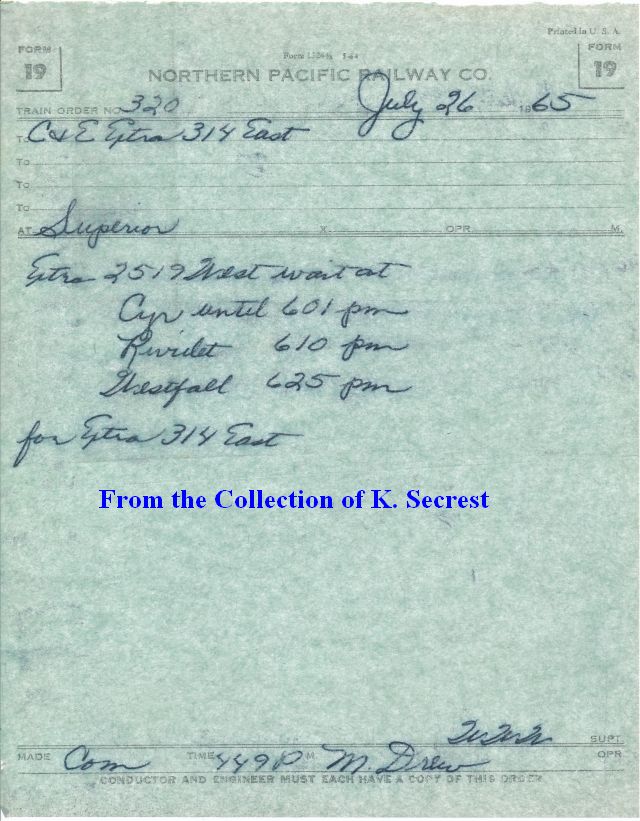 Printed in U. S. A.
FORM 19
Form
FORM 19
NORTHERN PACIFIC RAILWAY CO.
TRAIN ORDER NO. 320 July 26 1965
To C&E Extra 314 East
To
To
To
AT Superior X. OPR. M.
Extra 2519 West wait at
Cyr until 601 pm
Rivulet 610 pm
Westfall 625 pm
for Extra 314 East
From the Collection of K. Secrest
SUPT.
MADE Com TIME 449 P M M. Drew OPR
CONDUCTOR AND ENGINEER MUST EACH HAVE A COPY OF THIS ORDER